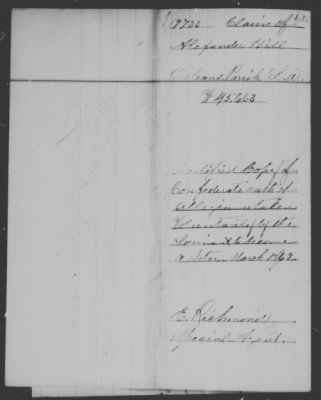 Claim of
Alexander Hill
Orleans Parish La.
$43.663
Certified Copy of
Confederate oath of
Allegiance taken
Voluntarily by the
Claimant to become
a voter in March 1862
E. Richmond
Special Agent.